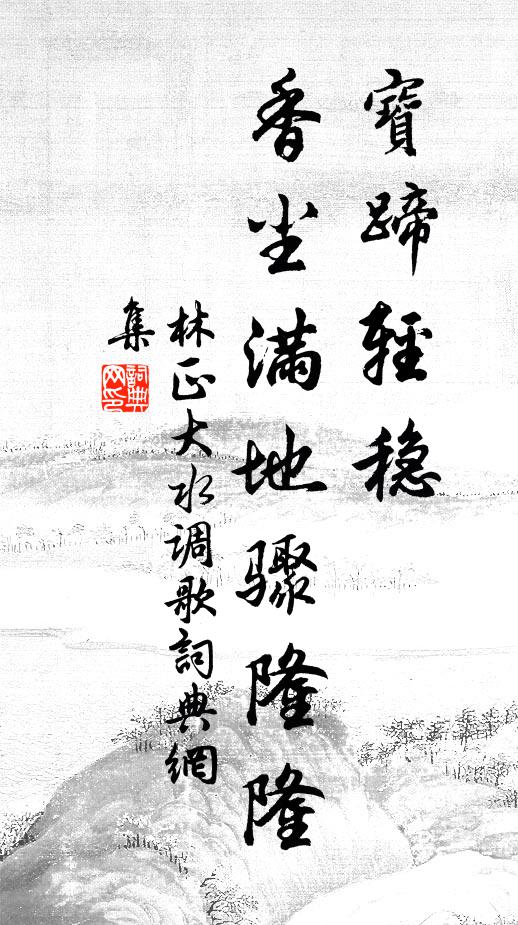 寶蹄輕穩
香尘滿地驟隆隆
林正大水调歌詞典網
集
詞典
网印